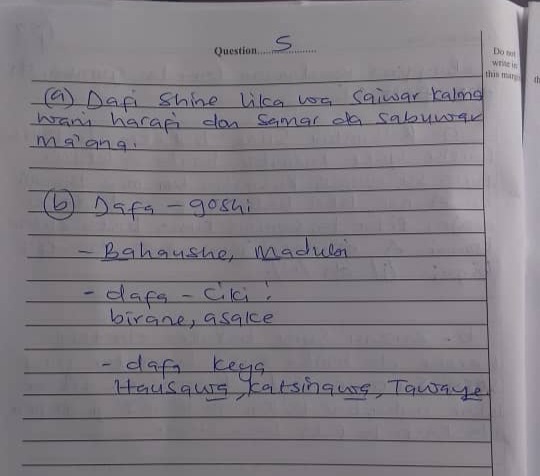 Question......5......
Do not
write in
this margin
(a) Dafi shine lika wa saiwar kalma
wani harafi don samar da sabuwar
ma'ana.
(b) Dafa - goshi
- Bahaushe, Maduɓi
- dafa - ciki :
birane, asake
- dafa keya
Hausawa, Katsinawa, Tawaye